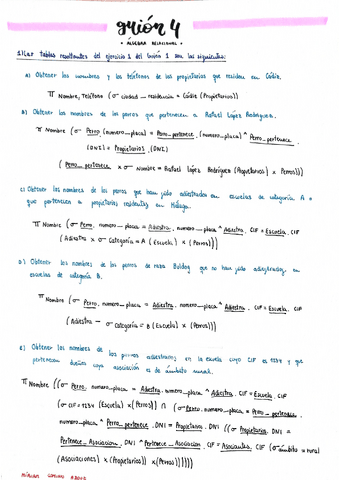 guión 4
• ÁLGEBRA RELACIONAL •
1) Las tablas resultantes del ejercicio 1 del Guión 1 son las siguientes:
a) Obtener los nombres y los teléfonos de los propietarios que residan en Cádiz.
π Nombre, Teléfono (σ ciudad_residencia = Cádiz (Propietarios))
b) Obtener los nombres de los perros que pertenecen a Rafael López Rodríguez.
π Nombre (σ Perro.(numero_placa) = Perro_pertenece.(numero_placa) ^ Perro_pertenece
(DNI) = Propietarios.(DNI)
(Perro_pertenece x σ Nombre = Rafael López Rodríguez (Propietarios) x Perros)))
c) Obtener los nombres de los perros que han sido adiestrados en escuelas de categoría A o
que pertenecen a propietarios residentes en Málaga.
π Nombre (σ Perro.numero_placa = Adiestra.numero_placa ^ Adiestra.CIF = Escuela.CIF
(Adiestra x σ Categoría = A (Escuela) x (Perros)))
d) Obtener los nombres de los perros de raza Bulldog que no han sido adiestrados en
escuelas de categoría B.
π Nombre (σ Perro.numero_placa = Adiestra.numero_placa ^ Adiestra.CIF = Escuela.CIF
(Adiestra - σ categoría = B (Escuela) x (Perros)))
e) Obtener los nombres de los perros adiestrados en la escuela cuyo CIF es 1234 y que
pertenecen dueños cuya asociación es de ámbito rural.
π Nombre ((σ Perro.numero_placa = Adiestra.numero_placa ^ Adiestra.CIF = Escuela.CIF
(σ CIF = 1234 (Escuela) x (Perros)) ∩ (σ Perro.numero_placa = Perro_pertenece.
numero_placa ^ Perro_pertenece.DNI = Propietario.DNI ((σ Propietario.DNI =
Pertenece_Asociacion.DNI ^ Pertenece_Asociacion.CIF = Asociacion.CIF (σ ámbito = rural
(Asociaciones) x (Propietarios)) x (Perros)))))